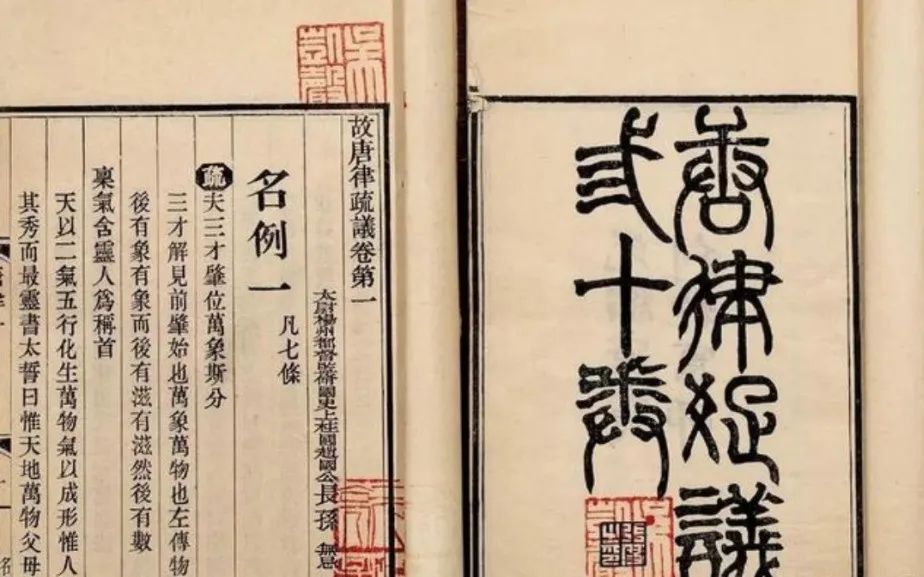 唐律疏議
弎十卷
吳
凱聲
故唐律疏議卷第一
太尉揚州都督監修國史上柱國趙國公長孫無忌
名例一 凡七條
疏夫三才肇位萬象斯分
三才解見前肇始也萬象萬物也左傳物
後有象有象而後有滋有滋然後有數
稟氣含靈人爲稱首
天以二氣五行化生萬物氣以成形惟人
其秀而最靈書太誓曰惟天地萬物父母